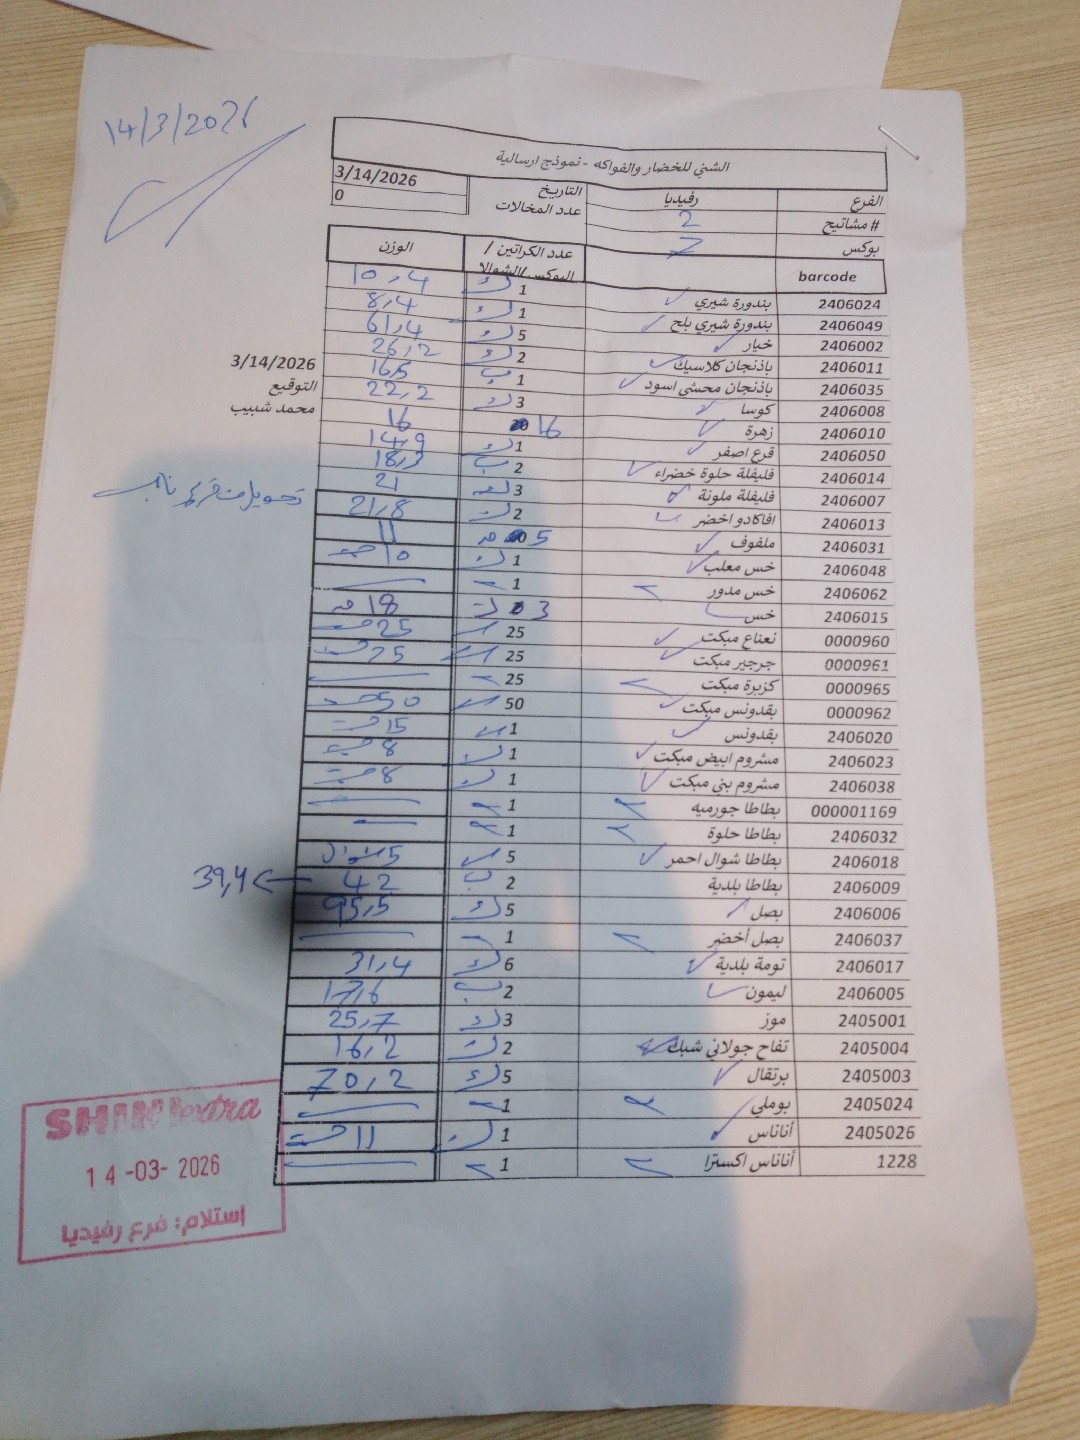 14/3/2026
الشني للخضار والفواكه - نموذج ارسالية
الفرع رفيديا التاريخ 3/14/2026
# مشاتيح 2 عدد المخالات 0
بوكس 7
barcode عدد الكراتين / البوكس/الشوالا الوزن
2406024 بندورة شيري 1 ك 10,4
2406049 بندورة شيري بلح 1 ك 8,4
2406002 خيار 5 ك 61,4
2406011 باذنجان كلاسيك 2 ك 26,2
2406035 باذنجان محشي اسود 1 ب 16,5
2406008 كوسا 3 ك 22,2
2406010 زهرة 16 16
2406050 قرع اصفر 1 ك 14,9
2406014 فليفلة حلوة خضراء 2 ب 18,3
2406007 فليفلة ملونة 3 21
2406013 افاكادو اخضر 2 ك 21,8
2406031 ملفوف 5 11
2406048 خس معلب 1 ك 10
2406062 خس مدور 1
2406015 خس 3 ك 18
0000960 نعناع مبكت 25 25
0000961 جرجير مبكت 25 25
0000965 كزبرة مبكت 25
0000962 بقدونس مبكت 50 50
2406020 بقدونس 1 15
2406023 مشروم ابيض مبكت 1 ك 8
2406038 مشروم بني مبكت 1 ك 8
000001169 بطاطا جورميه 1
2406032 بطاطا حلوة 1
2406018 بطاطا شوال احمر 5 5 شوال
2406009 بطاطا بلدية 2 ب 42 39,4
2406006 بصل 5 ك 95,5
2406037 بصل أخضر 1
2406017 تومة بلدية 6 ك 31,4
2406005 ليمون 2 ب 17,6
2405001 موز 3 ك 25,7
2405004 تفاح جولاني شبك 2 ك 16,2
2405003 برتقال 5 ك 70,2
2405024 بوملي 1
2405026 أناناس 1 ك 11
1228 أناناس اكسترا 1
3/14/2026
التوقيع
محمد شبيب
تحويل من فرع
SHINI extra
14-03-2026
إستلام: فرع رفيديا